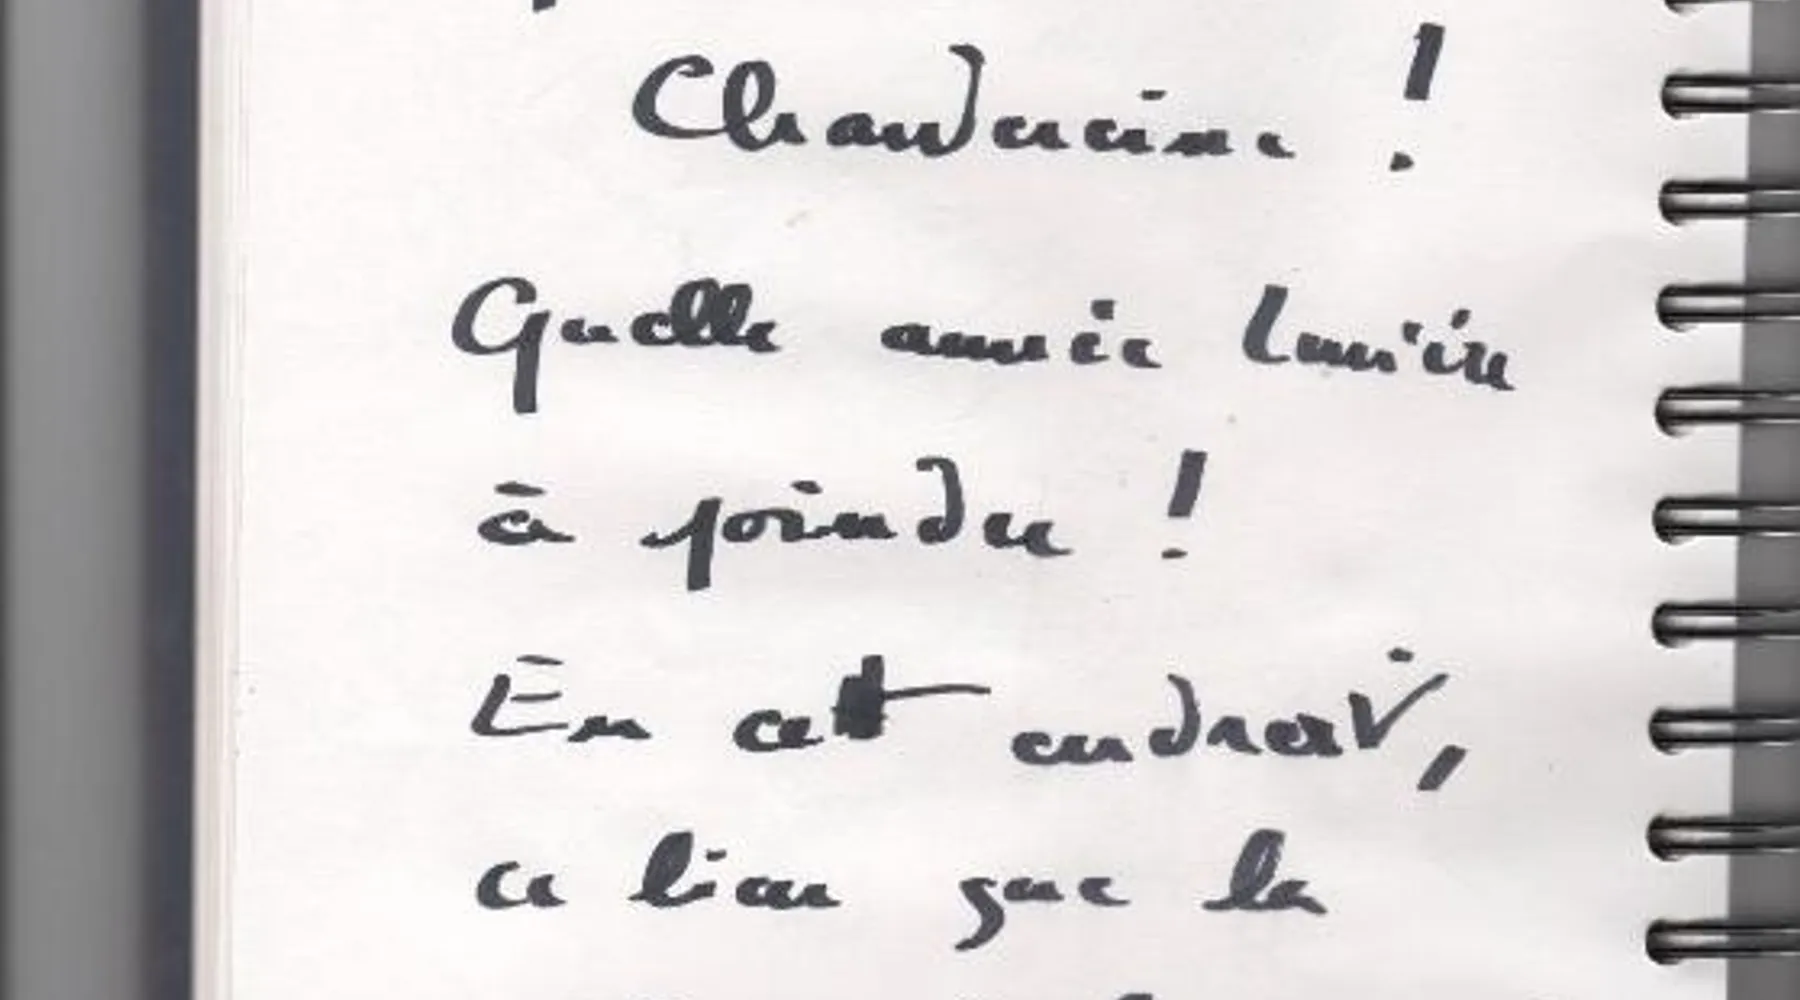 Chauducine !
Quelle année lumière
à joindre !
En cet endroit,
ce lieu que la